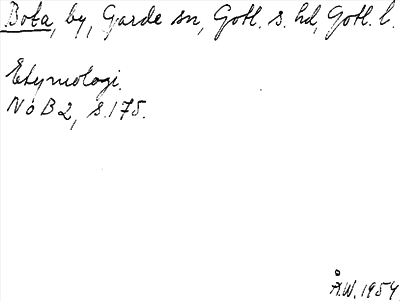 Bota, by, Garde sn, Gotl. s. hd, Gotl. l.
Etymologi.
NoB 2, s. 175.
Å.W. 1954